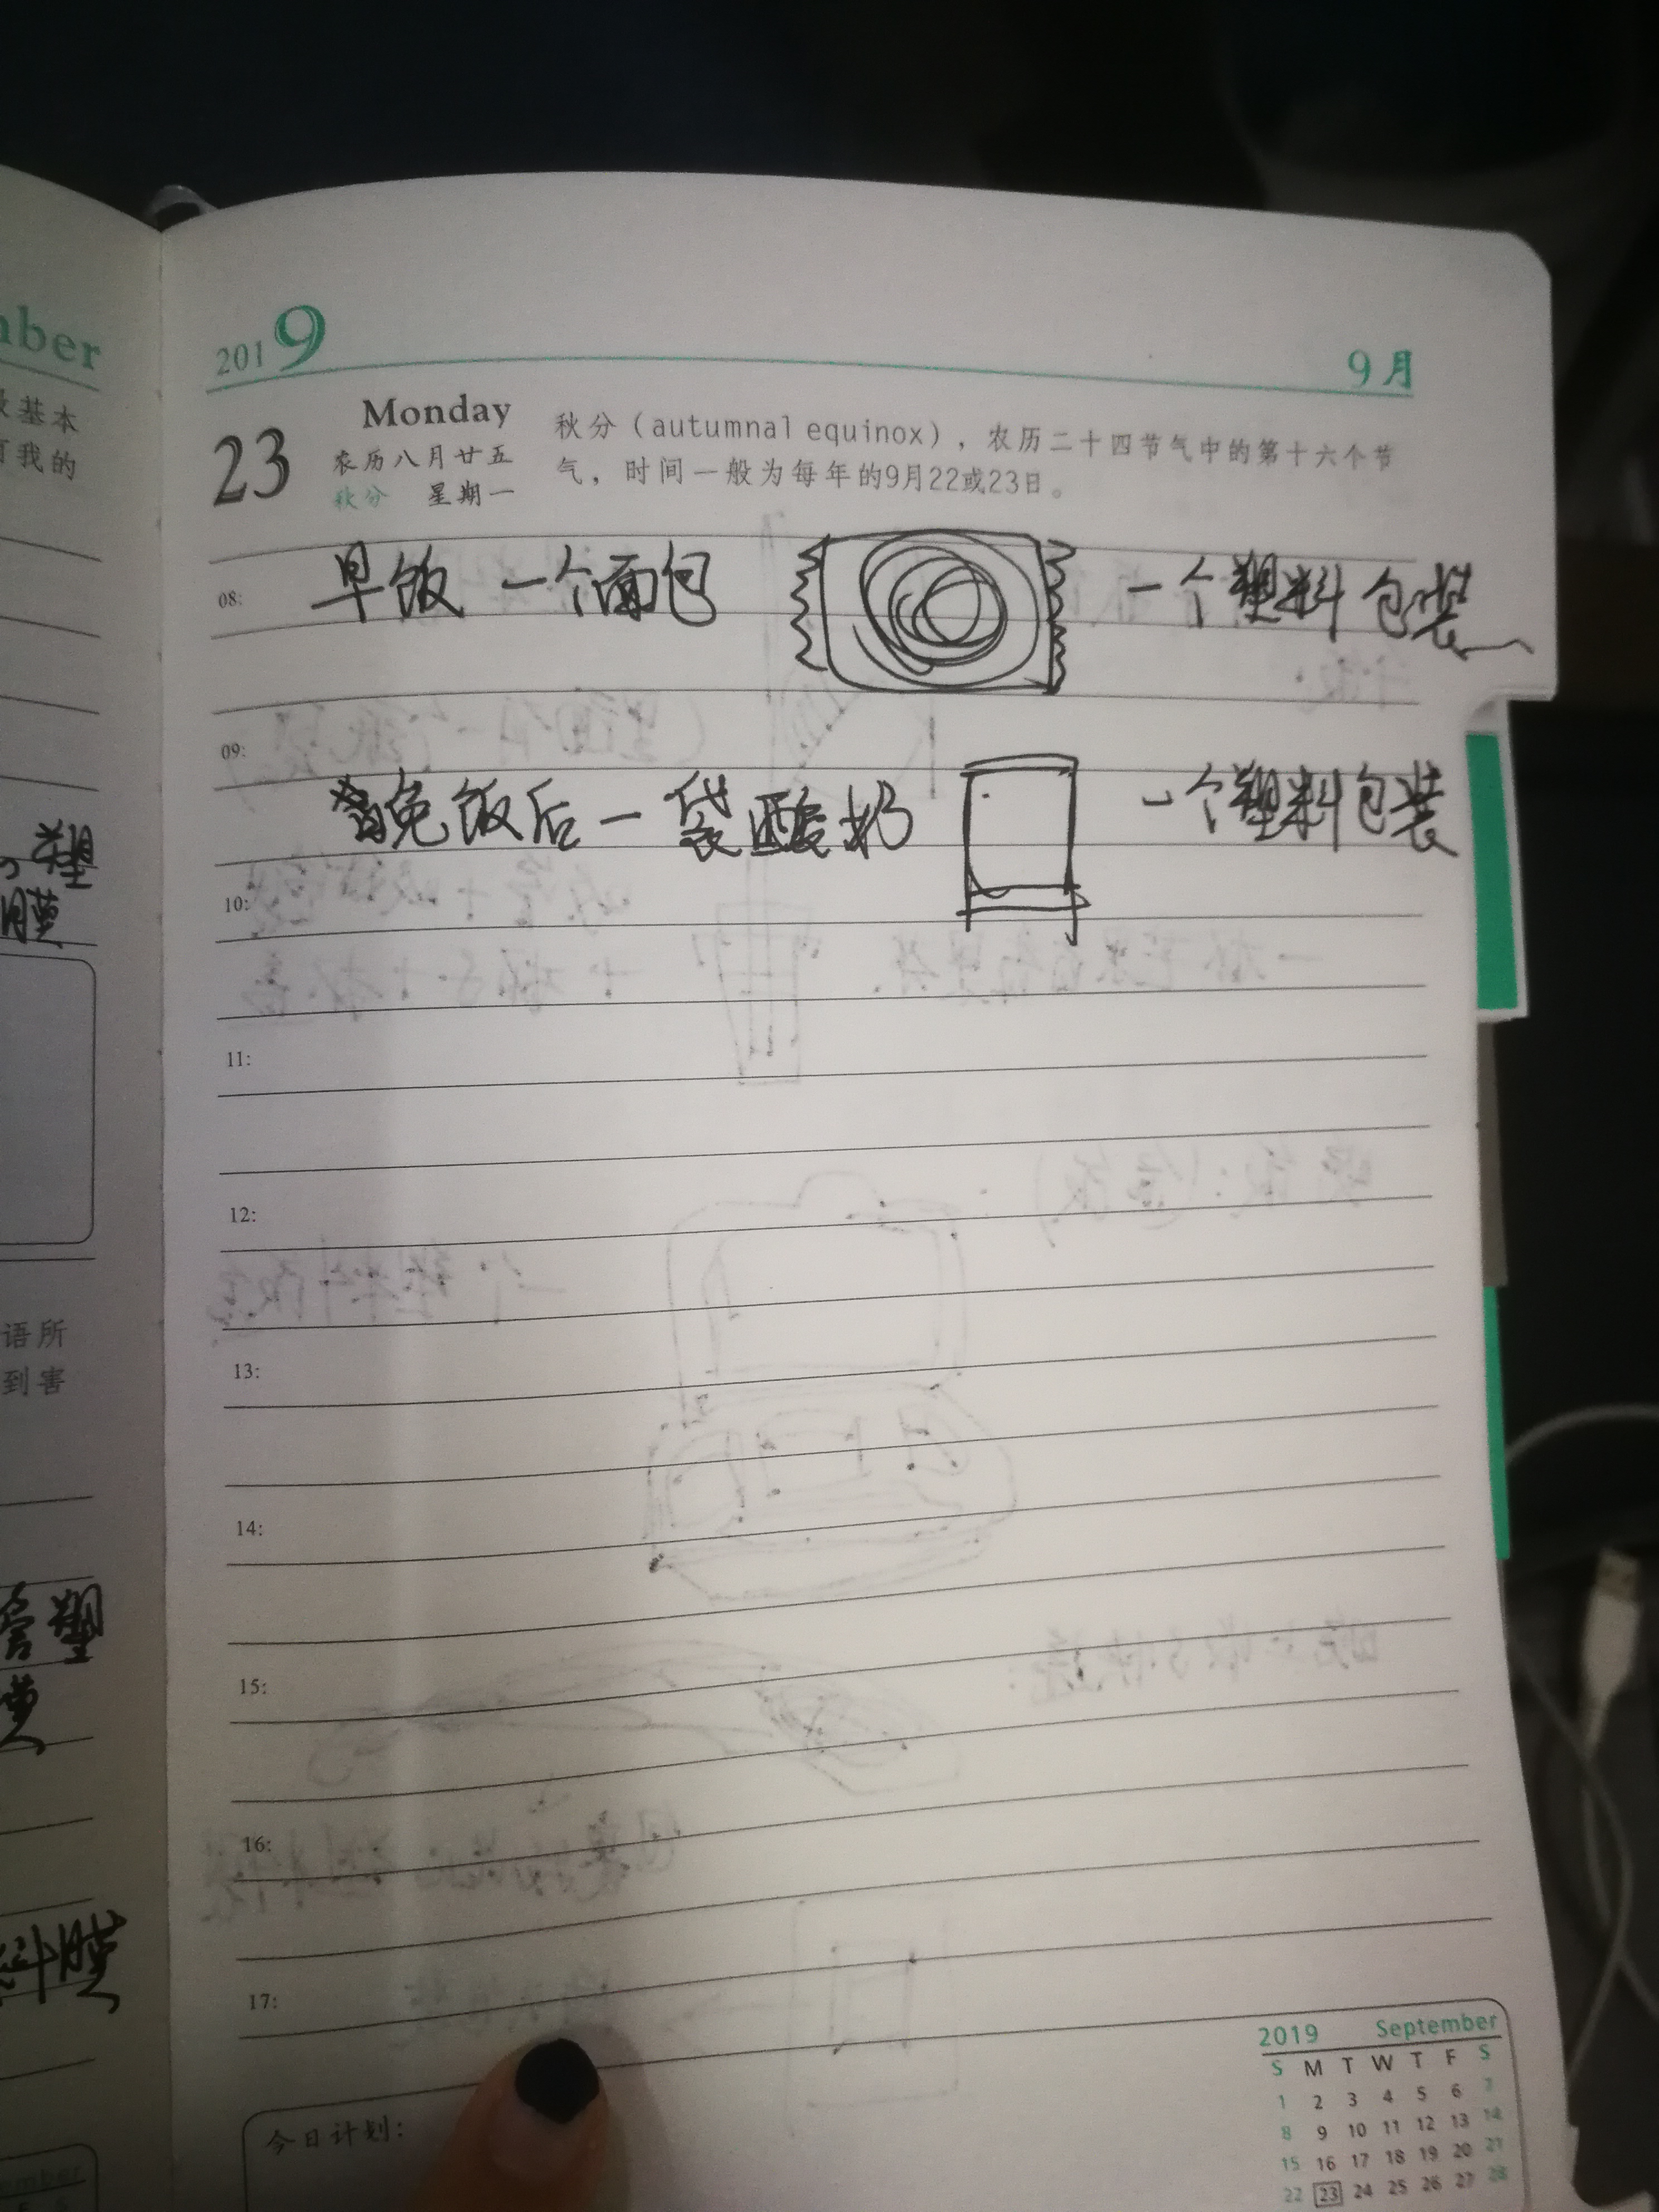 mber
基本
我的
塑
膜
语所
到害
管塑
料膜
2019
9月
23
Monday
农历八月廿五
秋分 星期一
秋分（autumnal equinox），农历二十四节气中的第十六个节
气，时间一般为每年的9月22或23日。
08: 早饭 一个面包 一个塑料包装
09:
晚饭后一袋酸奶 一个塑料包装
10:
11:
12:
13:
14:
15:
16:
17:
今日计划：
2019 September
S M T W T F S
1 2 3 4 5 6 7
8 9 10 11 12 13 14
15 16 17 18 19 20 21
22 23 24 25 26 27 28